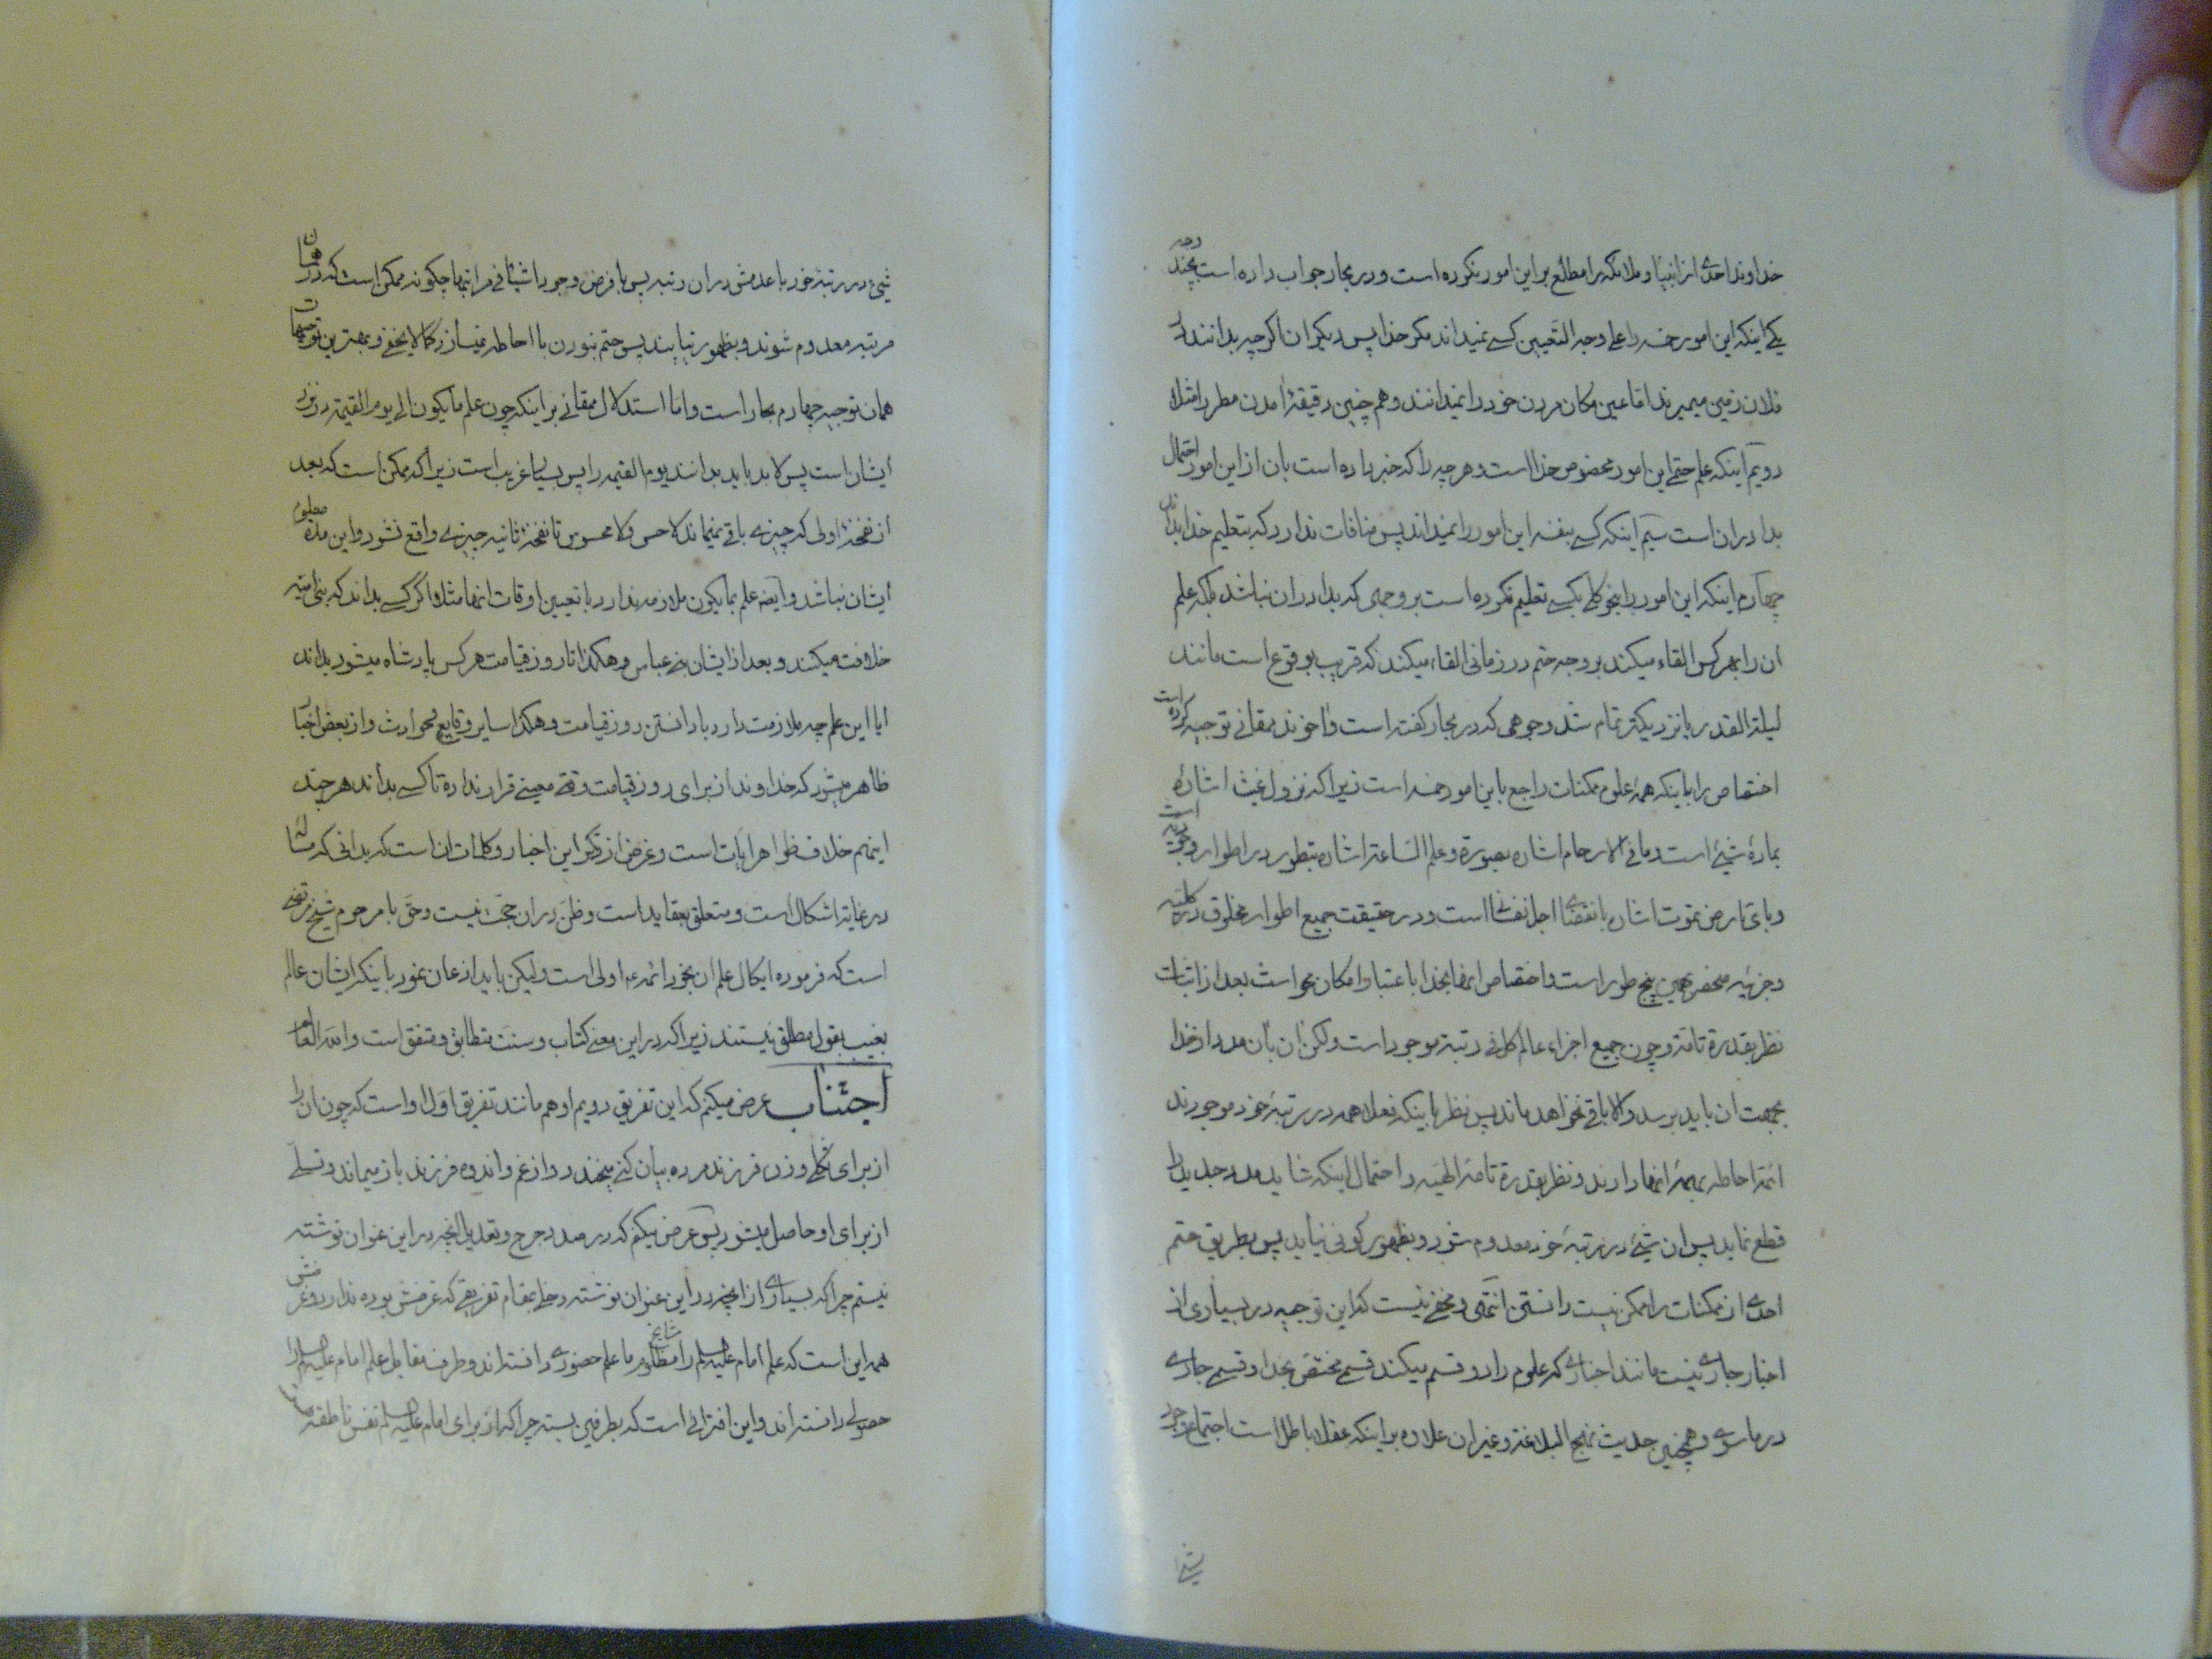 خداوند احدی از انبیا و ملائکه را مطلع بر این امور نکرده است و در بحار جواب داده است بچند وجه
یکی اینکه این امور خمسه را علی وجه التعیین کسی نمیداند مکر خدا پس دیکران اکرچه بدانند در
فلان زمین میمیرند اما عین مکان مردن خود را نمیدانند و هم چنین دقیقۀ امدن مطر را مثلا
دویم اینکه علم حتمی این امور مخصوص خدا است و هرچه را که خبر داده است بان از این امور احتمال
بدا در ان است سیم اینکه کسی بنفسه این امور را نمیداند پس منافات ندارد که بتعلیم خدا بداند
چهارم اینکه این امور را بنحو کلی بکسی تعلیم نکرده است بر وجهی که بدا در ان نباشد بلکه علم
ان را بهر کس القاء میکند بر وجه حتم در زمانی القاء میکند که قریب بوقوع است مانند
لیلة القدر یا نزدیکتر تمام شد وجوهی که در بحار کفته است و اخوند ممقانی توجیه کرده است
اختصاص را باینکه همۀ علوم ممکنات راجع باین امور خمسه است زیرا که نزول غیث اشاره
بمادۀ شیئ است و ما فی الارحام اشاره بصورة و علم الساعة اشاره بتطور در اطوار وجودیه است
و بای ارض تموت اشاره بانقضای اجل است و در حقیقت جمیع اطوار مخلوق در کلیه
و جزئیه منحصر بهمین پنج طور است و اختصاص انها بخدا باعتبار امکان محو است بعد از اثبات
نظر بقدرة تامة و چون جمیع اجزاء عالم کل فی رتبته موجود است ولکن ان بان مدد از خدا
بجهت ان باید برسد والا باقی نخواهد ماند پس نظر باینکه فعلا همه در رتبۀ خود موجودند
ائمه احاطه بهمۀ انها دارند و نظر بقدرة تامۀ الهیه و احتمال اینکه شاید مدد جدید را
قطع نماید پس ان شیئ در رتبۀ خود معدوم شود و بظهور کونی نیاید پس بطریق حتم
احدی از ممکنات را ممکن نیست دانستن انتهی و مخفی نیست که این توجیه در بسیاری از
اخبار جاری نیست مانند اخباری که علوم را دو قسم میکند قسمی مختص بخدا و قسمی جاری
در ماسوی و همچنین حدیث نهج البلاغه و غیر ان علاوه بر اینکه عقلا باطل است اجتماع وجود
شیئ در رتبۀ خود با عدمش در ان رتبه پس با فرض وجود اشیا فی مراتبها چکونه ممکن است که در همان
مرتبه معدوم شوند و بظهور نیایند پس حتم نبودن با احاطه نمیسازد کما لا یخفی و بهترین توجیهات
همان توجیه چهارم بحار است و اما استدلال ممقانی بر اینکه چون علم ما یکون الی یوم القیمة در نزد
ایشان است پس لابد باید بدانند یوم القیمه را پس بسیار غریب است زیرا که ممکن است که بعد
از نفخۀ اولی که چیزی باقی نمیماند لا حس و لا محسوس تا نفخۀ ثانیه چیزی واقع نشود و این مدة معلوم
ایشان نباشد و ایضا علم بما یکون ملازمه ندارد با تعیین اوقات انها مثلا اکر کسی بداند که بنی امیه
خلافت میکنند و بعد از ایشان بنی عباس و هکذا تا روز قیامت هر کس پادشاه میشود بداند
ایا این علم چه ملازمت دارد با دانستن روز قیامت و هکذا سایر وقایع و حوادث و از بعض اخبار
ظاهر میشود که خداوند از برای روز قیامت وقت معینی قرار نداده تا کسی بداند هر چند
اینهم خلاف ظواهر ایات است و غرض از ذکر این اخبار و کلمات ان است که بدانی که مسئله
در غایة اشکال است و متعلق بعقاید است و ظن در ان حجت نیست و حق با مرحوم شیخ مرتضی
است که فرموده ایکال علم ان بخود ائمه ع اولی است ولیکن باید اذعان نمود باینکه ایشان عالم
بغیب بقول مطلق نیستند زیرا که در این معنی کتاب و سنت متطابق و متفق است والله العالم
اجتناب عرض میکنم که این تفریق دویم او هم مانند تفریق اول او است که چون ان را
از برای ثکلی و زن فرزند مرده بیان کنی بخندد و از غم و اندوه فرزند باز میماند و تسلی
از برای او حاصل میشود پس عرض میکنم که در صدد جرح و تعدیل انچه در این عنوان نوشته
نیستم چرا که بسیاری از انچه در این عنوان نوشته دخلی بمقام تفرقه که غرضش بوده ندارد و غرضش
همه این است که علم امام علیه السلم را مشایخ ما علم حضوری دانسته اند و طرف مقابل علم امام علیه السلم را
حصولی دانسته اند و این افترائی است که بطرفین بسته چرا که از برای امام علیه السلم نفس ناطقه